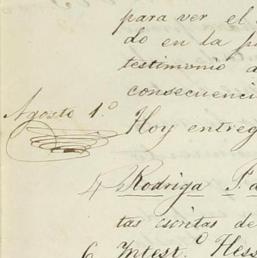 para ver el
do en la
testimonio
consecuenci
Agosto 1.º Hoy entreg
Rodriga
tas escritas de
6 Intest.º Hess